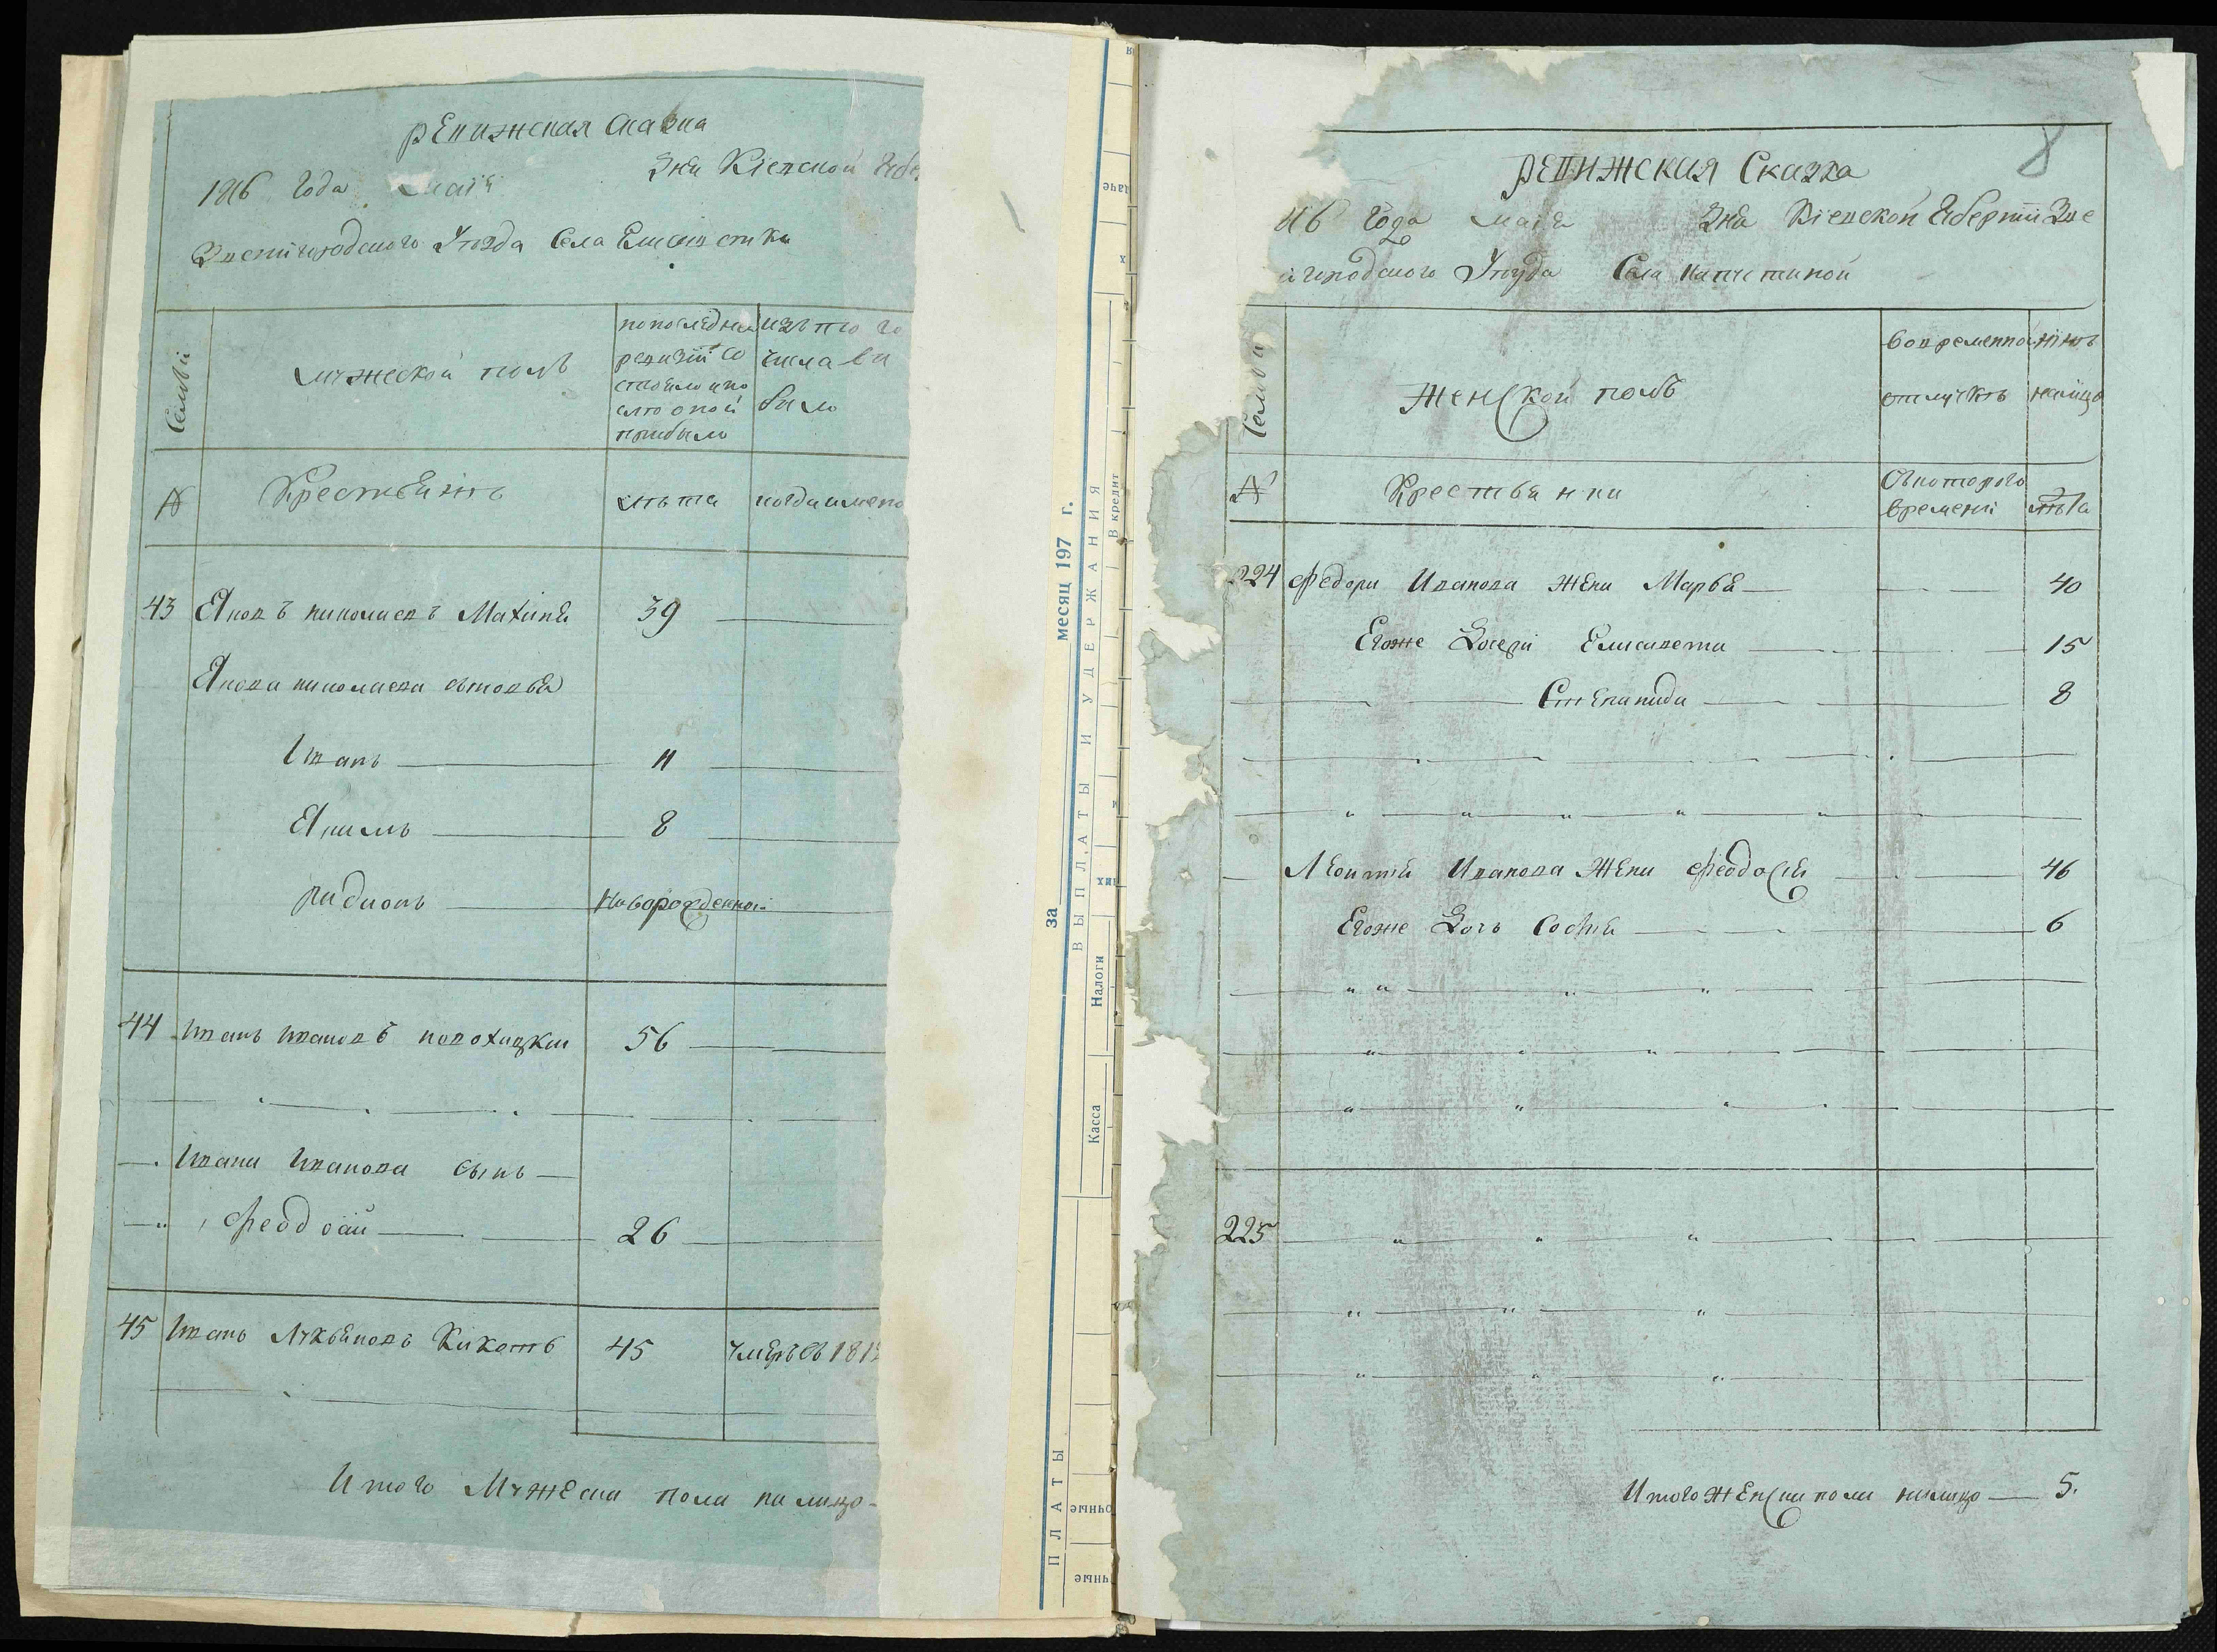 Ревижская Сказка
1816 Года Маія Дня Кіевской Губе
Звенигородского Уезда Села
Семьи
мужеской полъ
попоследней ревизіи состояло ипослѣ оной прибыло
изътого числа вибыло
№
Крестьяне
лѣта
когда имено
43 Яковъ николаевъ 39
Якова николаева сыновья
Іванъ 11
Якимъ 8
радионъ Новорожденной
44 Иванъ Ивановъ 56
Ивана Иванова сынъ
Феодосій 26
45 Иванъ Лукьяновъ Кикоть 45 умеръ въ 181
Итого Мужеска пола налицо
8
Ревижская Сказка
16 Года Маія Дня Кіевской Губерніи Зве
игородского Уезда Села
Семьи
Женской полъ
вовременной отлучкѣ
нынѣ налицо
№
Крестьянки
Скоторого времени
лѣта
224 Федора Иванова жена Марья 40
Егоже Дочери Елисавета 15
Степанида 8
Леонтія Иванова Жена Феодосія 46
Егоже Дочь Софія 6
225
Итого женска пола налицо 5.
за месяц 197 г.
ВЫПЛАТЫ И УДЕРЖАНИЯ
В кредит
Налоги
Касса
ПЛАТЫ